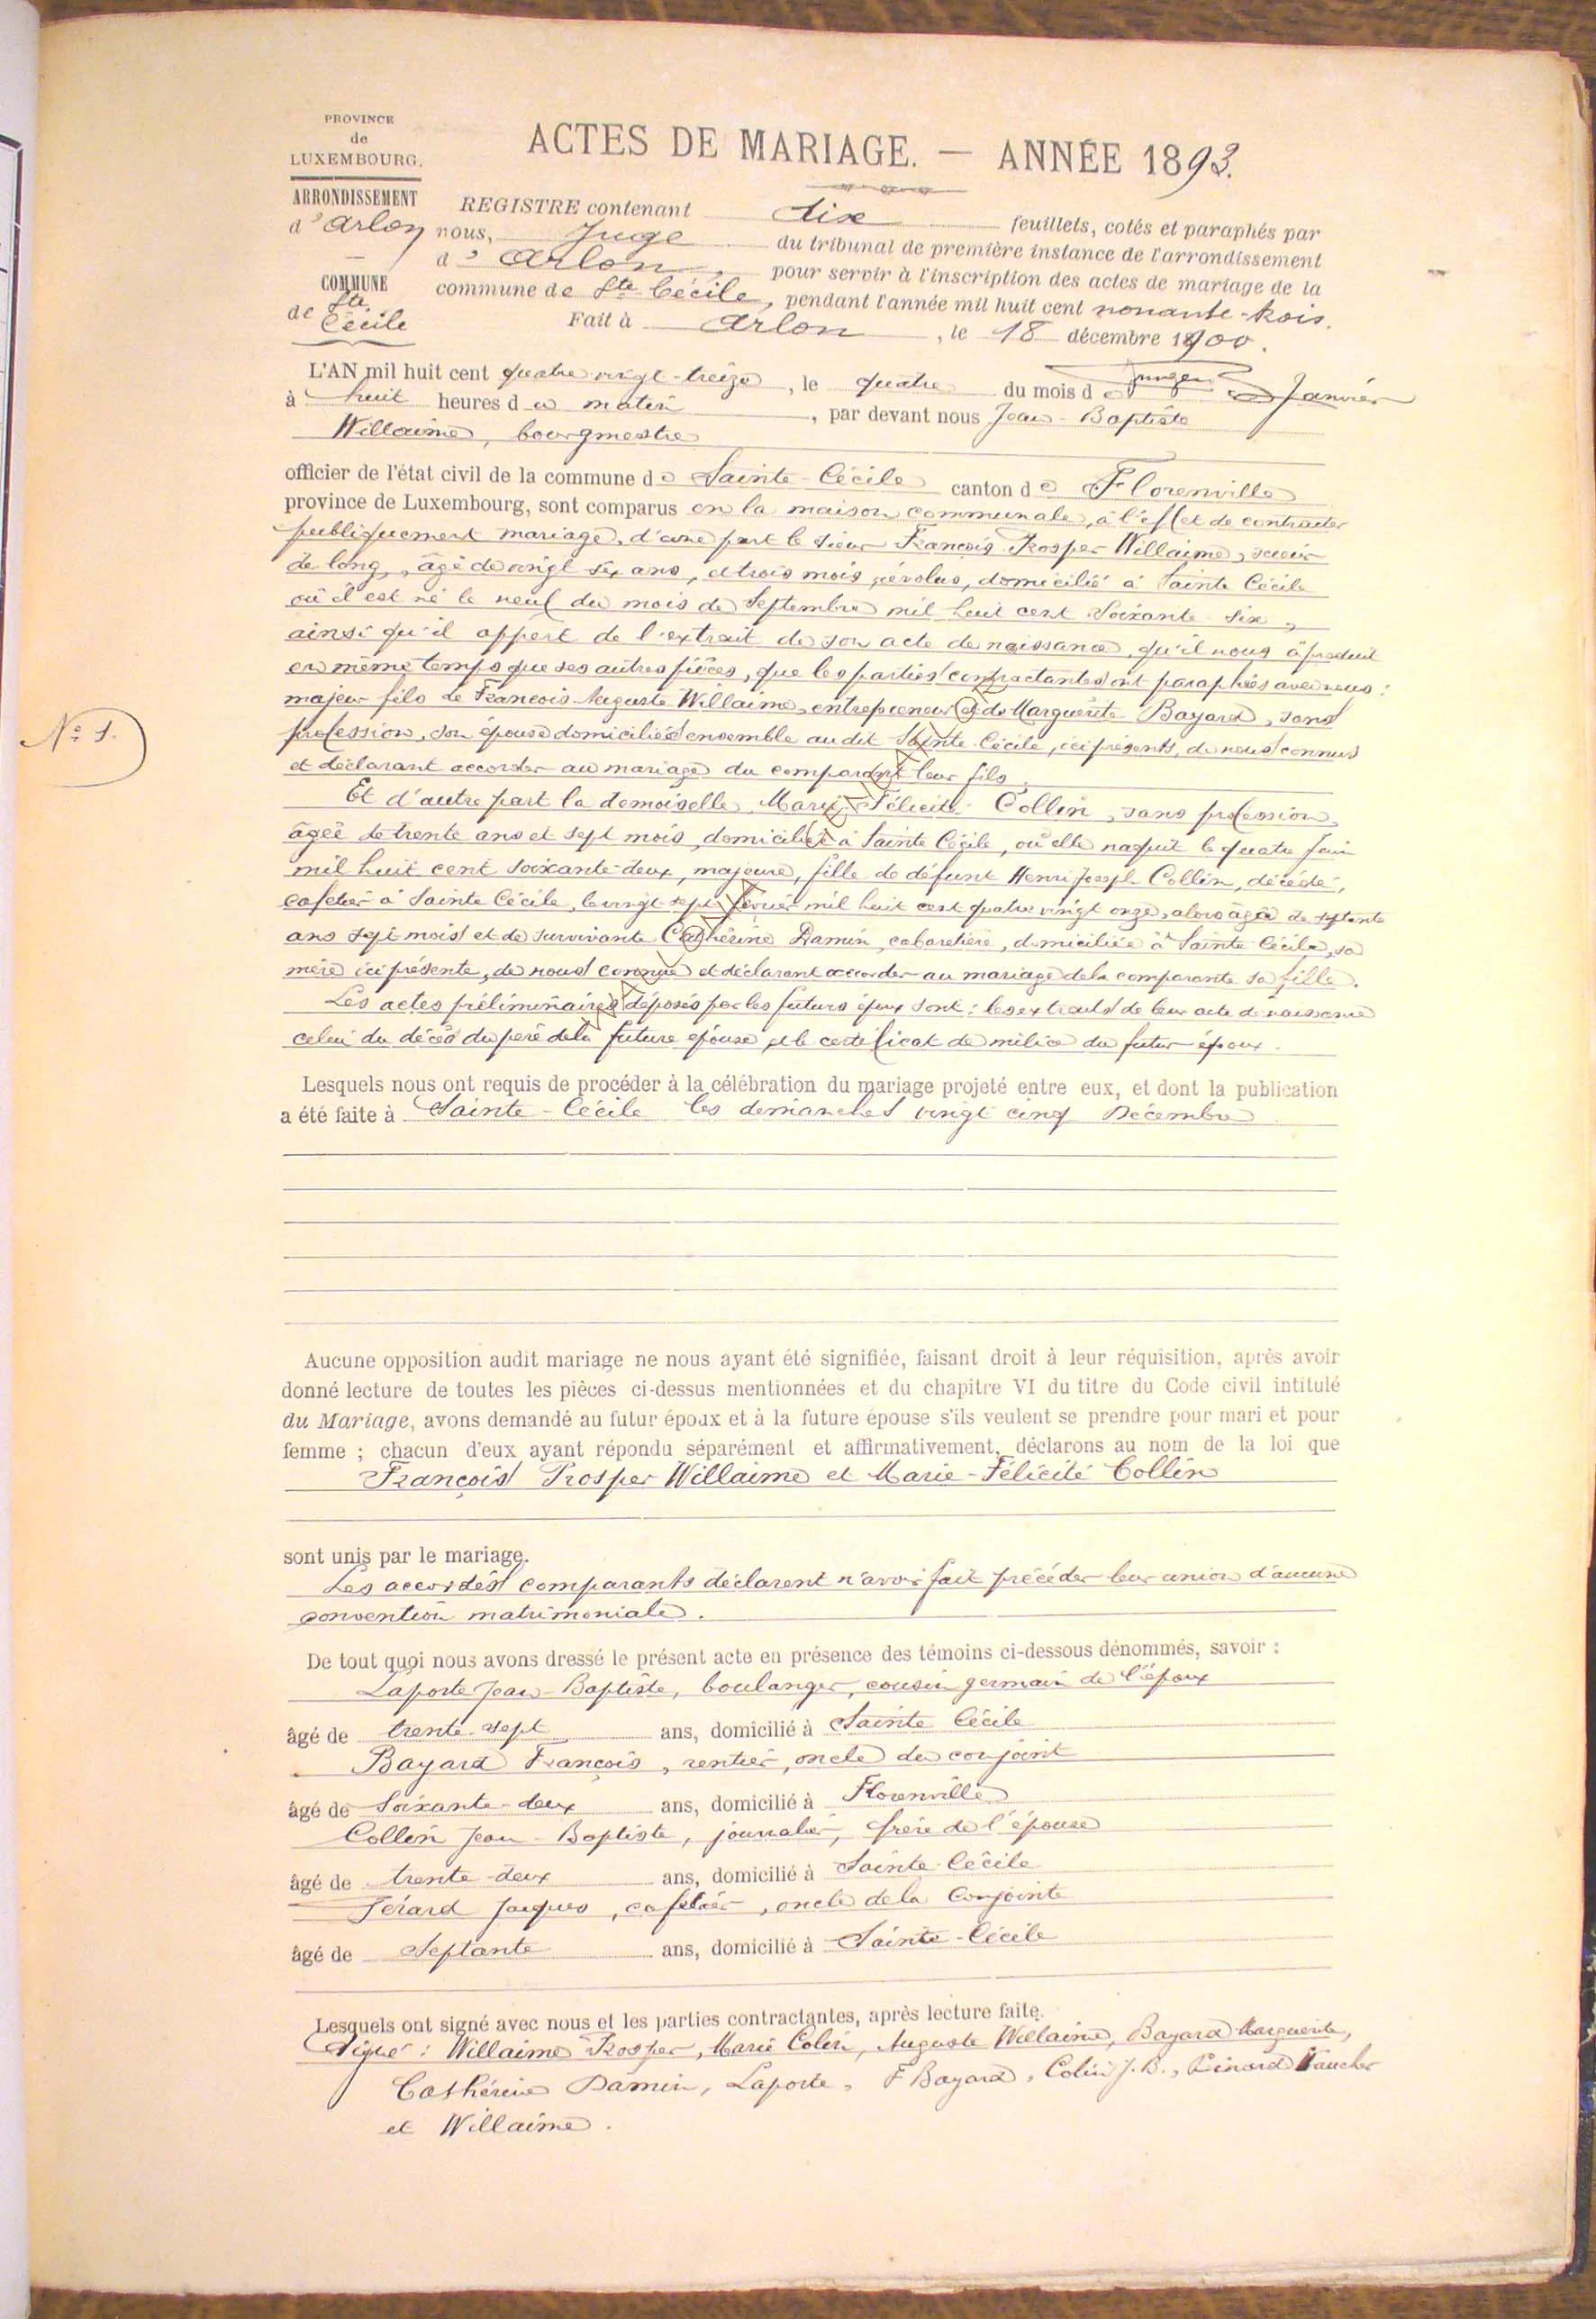 PROVINCE
de
LUXEMBOURG.
ARRONDISSEMENT
d'Arlon
COMMUNE
de Ste
Cécile
ACTES DE MARIAGE. — ANNÉE 1893.
REGISTRE contenant dix feuillets, cotés et paraphés par
nous, Juge du tribunal de première instance de l'arrondissement
d'Arlon, pour servir à l'inscription des actes de mariage de la
commune de Ste Cécile, pendant l'année mil huit cent nonante-trois.
Fait à Arlon, le 18 décembre 1900.
N° 1.
L'AN mil huit cent quatre vingt-treize, le quatre du mois de Janvier
à huit heures du matin, par devant nous Jean-Baptiste
Willaime, bourgmestre
officier de l'état civil de la commune de Sainte-Cécile canton de Florenville
province de Luxembourg, sont comparus en la maison communale, à l'effet de contracter
publiquement mariage, d'une part le sieur François Prosper Willaime, scieur
de long, âgé de vingt six ans, et trois mois révolus, domicilié à Sainte Cécile
où il est né le neuf du mois de Septembre mil huit cent Soixante-six,
ainsi qu'il appert de l'extrait de son acte de naissance, qu'il nous à produit
en même temps que ses autres pièces, que les parties contractantes ont paraphées avec nous :
majeur fils de François-Auguste Willaime, entrepreneur et de Marguerite Bayard, sans
profession, son épouse domiciliés ensemble au dit Sainte-Cécile, ici présents, de nous connus
et déclarant accorder au mariage du comparant leur fils.
Et d'autre part la demoiselle Marie-Félicité Collin, sans profession,
âgée de trente ans et sept mois, domiciliée à Sainte Cécile, où elle naquit le quatre Juin
mil huit cent soixante-deux, majeure, fille de défunt Henri Joseph Collin, décédé,
cafetier à Sainte Cécile, le vingt-sept février mil huit cent quatre vingt onze, alors âgé de septante
ans sept mois et de survivante Cathérine Damin, cabaretière, domiciliée à Sainte Cécile, sa
mère ici présente, de nous connue et déclarant accorder au mariage de la comparante sa fille.
Les actes préliminaires déposés par les futurs époux sont : les extraits de leur acte de naissance
celui du décès du père de la future épouse et le certificat de milice du futur époux.
Lesquels nous ont requis de procéder à la célébration du mariage projeté entre eux, et dont la publication
a été faite à Sainte-Cécile les dimanches vingt cinq Décembre
Aucune opposition audit mariage ne nous ayant été signifiée, faisant droit à leur réquisition, après avoir
donné lecture de toutes les pièces ci-dessus mentionnées et du chapitre VI du titre du Code civil intitulé
du Mariage, avons demandé au futur époux et à la future épouse s'ils veulent se prendre pour mari et pour
femme ; chacun d'eux ayant répondu séparément et affirmativement, déclarons au nom de la loi que
François Prosper Willaime et Marie-Félicité Collin
sont unis par le mariage.
Les accordés comparants déclarent n'avoir fait précéder leur union d'aucune
convention matrimoniale.
De tout quoi nous avons dressé le présent acte en présence des témoins ci-dessous dénommés, savoir :
Laporte Jean-Baptiste, boulanger, cousin germain de l'époux
âgé de trente-sept ans, domicilié à Sainte Cécile
Bayard François, rentier, oncle du conjoint
âgé de Soixante-deux ans, domicilié à Florenville
Collin Jean-Baptiste, journalier, frère de l'épouse
âgé de trente-deux ans, domicilié à Sainte-Cécile
Jacques, cafetier, oncle de la Conjointe
âgé de Septante ans, domicilié à Sainte-Cécile
Lesquels ont signé avec nous et les parties contractantes, après lecture faite.
Signé : Willaime Prosper, Marie Colin, Auguste Willaime, Bayard Marguerite,
Cathérine Damin, Laporte, F Bayard, Colin J.B.,
et Willaime.